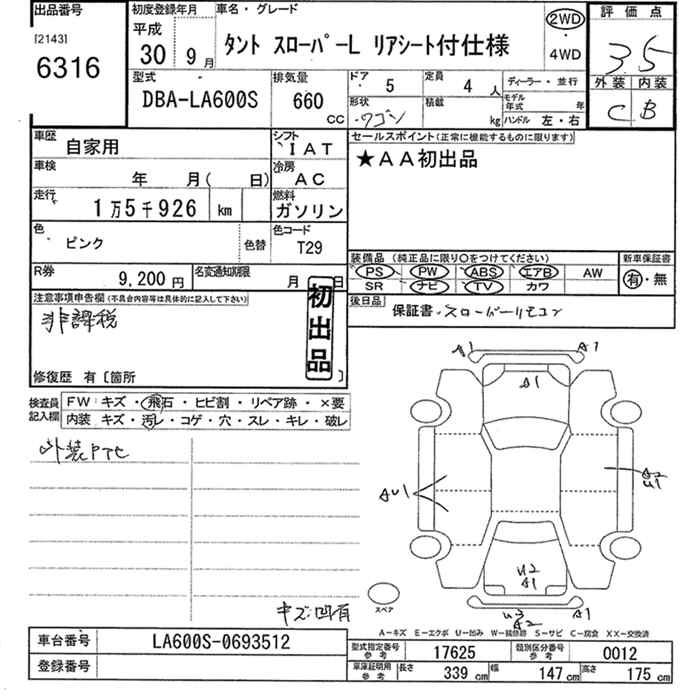 出品番号 初度登録年月 車名・グレード 2WD 評価点
[2143] 平成
6316 30年 9月 タント スローパーL リアシート付仕様 ・ 3.5
4WD
型式 排気量 ドア 5 定員 4人 ディーラー・並行 外装 内装
DBA-LA600S 660cc 形状 ワゴン 積載 kg モデル年式 年 C B
ハンドル 左・右
車歴 自家用 シフト IAT セールスポイント(正常に機能するものに限ります)
車検 年 月( 日) 冷房 AC ★AA初出品
走行 1万5千926 km 燃料 ガソリン
色 ピンク 色替 色コード T29
装備品 (純正品に限り○をつけてください) 新車保証書
R券 9,200円 名変通知期限 月 日 PS PW ABS エアB AW 有・無
SR ナビ TV カワ
注意事項申告欄(不具合内容等は具体的に記入して下さい) 初出品 後日品 保証書・スローパーリモコン
非課税
修復歴 有〔箇所 〕
検査員記入欄 FW キズ・飛石・ヒビ割・リペア跡・×要
内装 キズ・汚レ・コゲ・穴・スレ・キレ・破レ
A1 A1
A1
外装PTC
AU1
A2
U1
U2
A1
キズ凹有 スペア
U2
A2 A1
A-キズ E-エクボ U-凹み W-補修跡 S-サビ C-腐食 XX-交換済
車台番号 LA600S-0693512
登録番号
型式指定番号 参考 17625 類別区分番号 参考 0012
車庫証明用 参考 長さ 339cm 幅 147cm 高さ 175cm